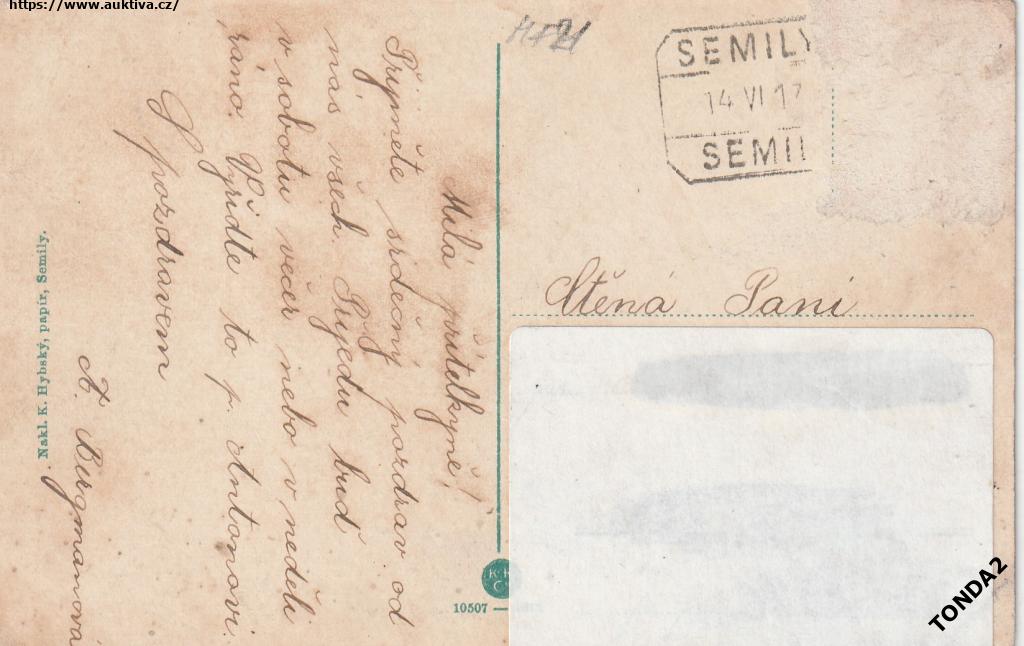 https://www.auktiva.cz/
Milá přítelkyně!
Přijměte srdečný pozdrav od
nás všech. Přijedu buď
v sobotu večer nebo v neděli
ráno. Vyřiďte to p. Antonovi.
S pozdravem
A. Bergmanová
Nakl. K. Hybský, papír, Semily.
SEMILY
14 VI 17
SEMIL
Ctěná Paní
10507
TONDA2